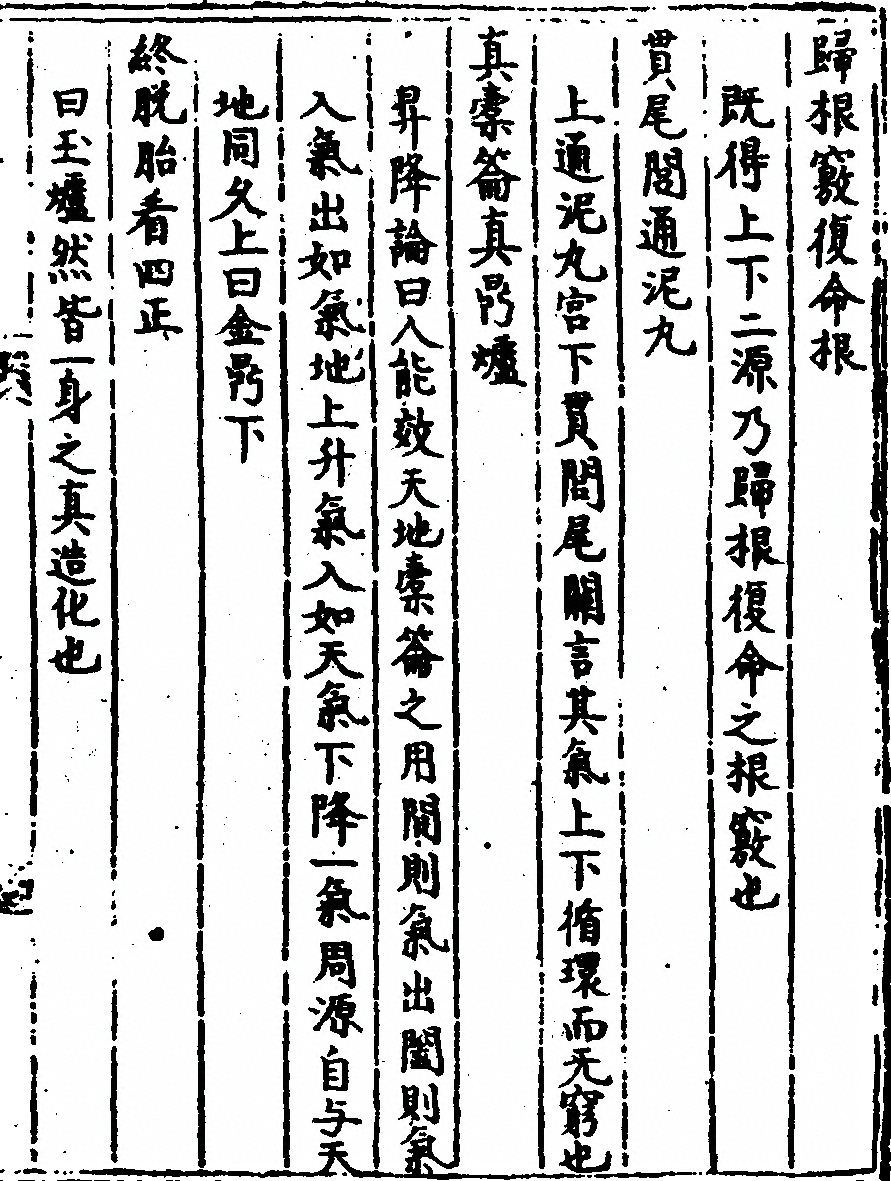 歸根竅復命根
既得上下二源乃歸根復命之根竅也
貫尾閭通泥丸
上通泥丸宮下貫閭尾關言其氣上下循環而无窮也
真橐籥真鼎爐
昇降論曰人能效天地橐籥之用開則氣出闔則氣
入氣出如氣地上升氣入如天氣下降一氣周源自与天
地同久上曰金鼎下
終脱胎看四正
曰玉爐然皆一身之真造化也